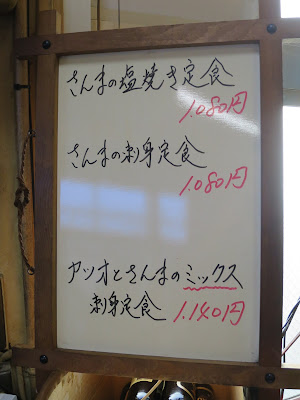 さんまの塩焼き定食
1.080円
さんまの刺身定食
1.080円
カツオとさんまのミックス
刺身定食 1.140円